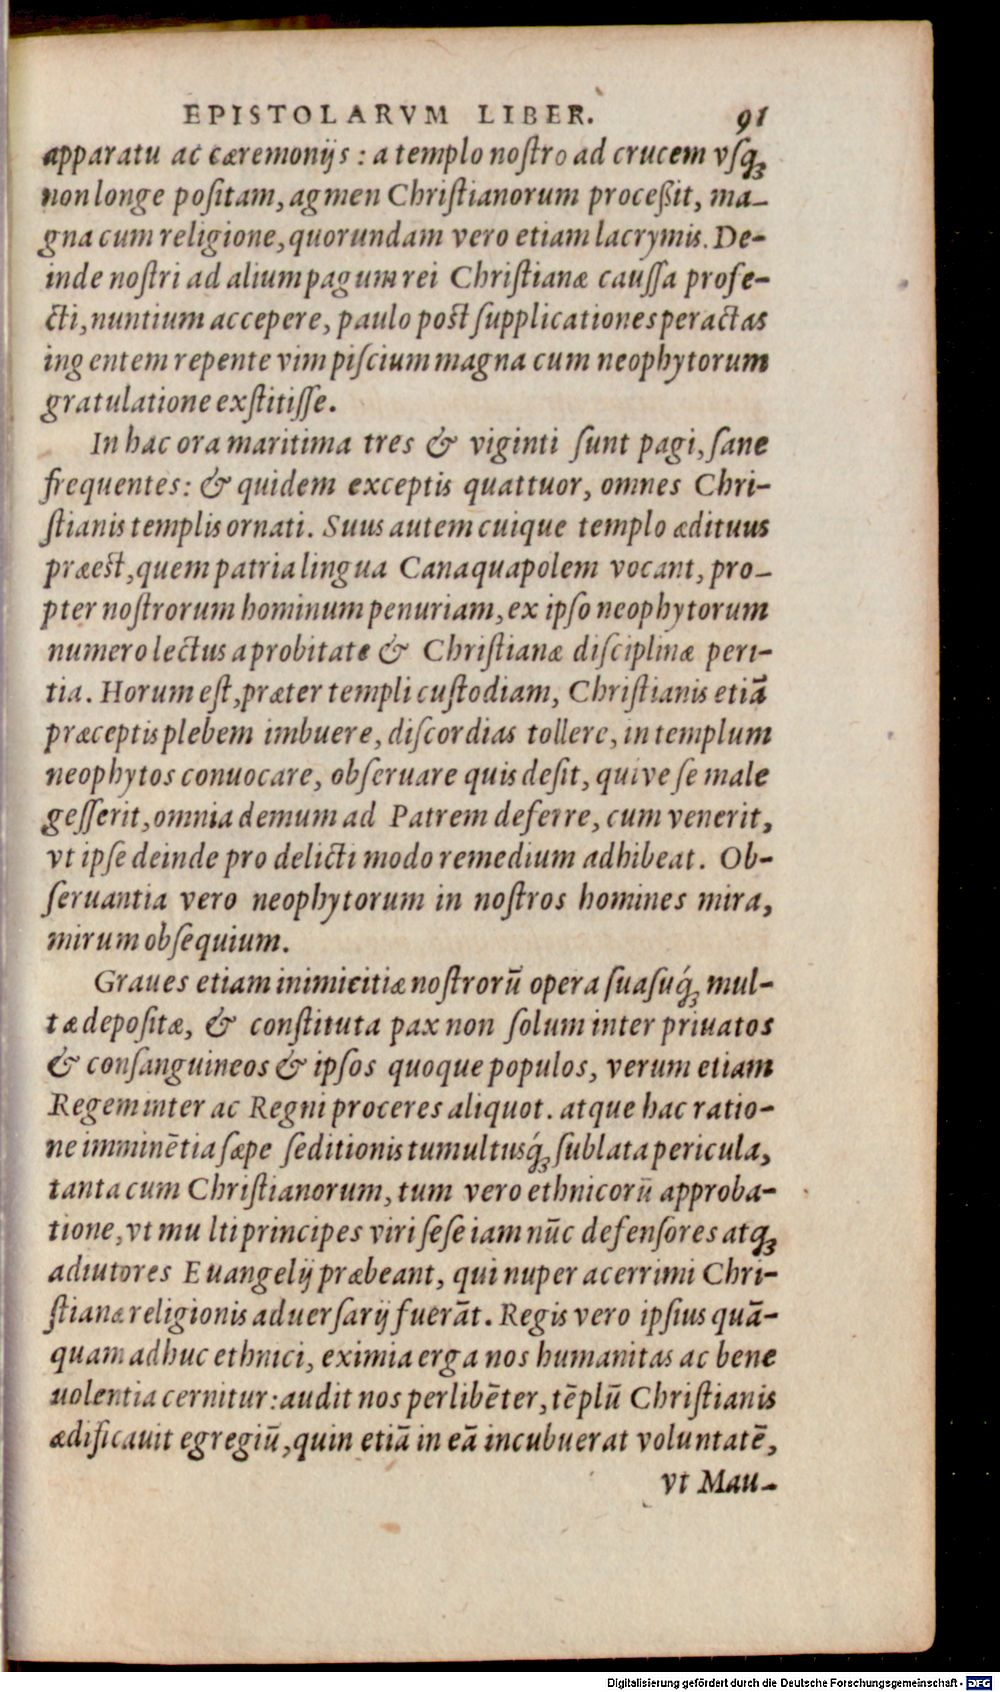 EPISTOLARVM LIBER. 91
apparatu ac cæremonijs : a templo noſtro ad crucem vſq́;
non longe poſitam, agmen Chriſtianorum proceßit, ma-
gna cum religione, quorundam vero etiam lacrymis. De-
inde noſtri ad alium pagum rei Chriſtianæ cauſſa profe-
cti, nuntium accepere, paulo post ſupplicationes peractas
ingentem repente vim piſcium magna cum neophytorum
gratulatione exſtitiſſe.
In hac ora maritima tres & viginti ſunt pagi, ſane
frequentes: & quidem exceptis quattuor, omnes Chri-
ſtianis templis ornati. Suus autem cuique templo ædituus
præest, quem patria lingua Canaquapolem vocant, pro-
pter noſtrorum hominum penuriam, ex ipſo neophytorum
numero lectus a probitate & Chriſtianæ diſciplinæ peri-
tia. Horum eſt, præter templi cuſtodiam, Chriſtianis etiã
præceptis plebem imbuere, diſcordias tollere, in templum
neophytos conuocare, obſeruare quis deſit, quive ſe male
geſſerit, omnia demum ad Patrem deferre, cum venerit,
vt ipſe deinde pro delicti modo remedium adhibeat. Ob-
ſeruantia vero neophytorum in noſtros homines mira,
mirum obſequium.
Graues etiam inimicitiæ noſtrorũ opera ſuaſuq́; mul-
tæ depoſitæ, & conſtituta pax non ſolum inter priuatos
& conſanguineos & ipſos quoque populos, verum etiam
Regem inter ac Regni proceres aliquot. atque hac ratio-
ne imminẽtia ſæpe ſeditionis tumultusq́; ſublata pericula,
tanta cum Chriſtianorum, tum vero ethnicorũ approba-
tione, vt multi principes viri ſeſe iam nũc defenſores atq́;
adiutores Euangelij præbeant, qui nuper acerrimi Chri-
ſtianæ religionis aduerſarij fuerãt. Regis vero ipſius quã-
quam adhuc ethnici, eximia erga nos humanitas ac bene
uolentia cernitur: audit nos perlibẽter, tẽplũ Chriſtianis
ædificauit egregiũ, quin etiã in eã incubuerat voluntatẽ,
vt Mau-
Digitalisierung gefördert durch die Deutsche Forschungsgemeinschaft - DFG